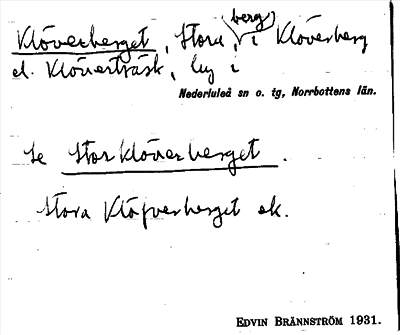 Klöverberget, Stora, berg i Klöverberg
el. Klöverträsk, by i
Nederluleå sn o. tg, Norrbottens län.
Se Storklöverberget.
Stora Klöfverberget ek.
EDVIN BRÄNNSTRÖM 1931.